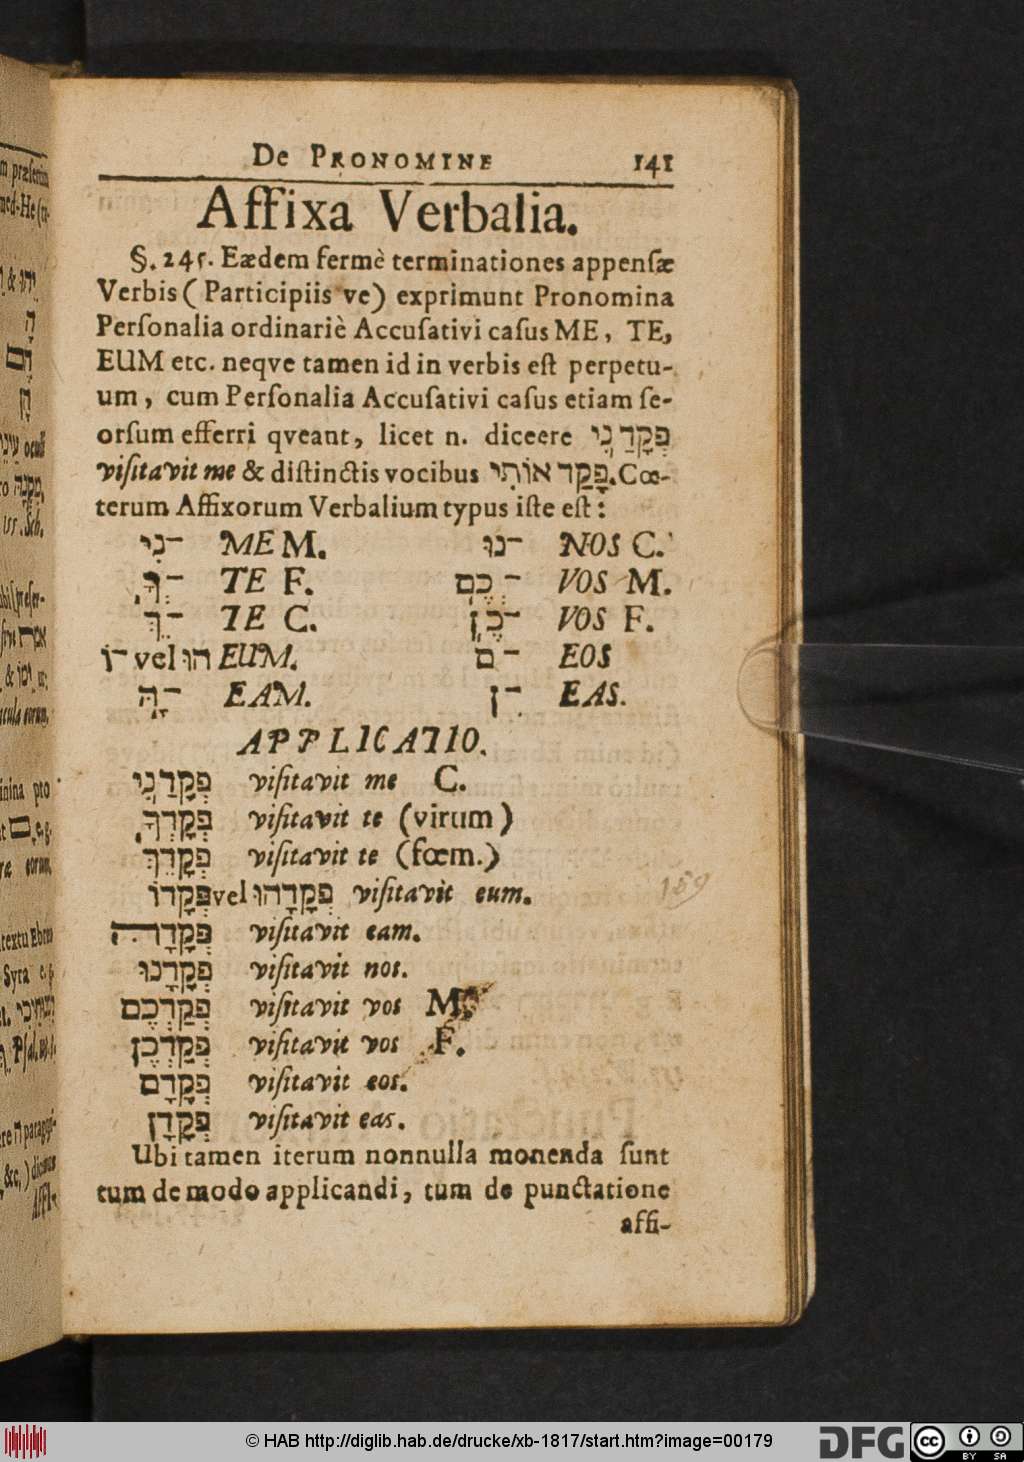 De PRONOMINE 141
Affixa Verbalia.
§. 245. Eædem fermè terminationes appensæ
Verbis ( Participiis ve) exprimunt Pronomina
Personalia ordinariè Accusativi casus ME, TE,
EUM etc. neqve tamen id in verbis est perpetu-
um, cum Personalia Accusativi casus etiam se-
orsum efferri qveant, licet n. diceere פְּקָדַנִי
visitavit me & distinctis vocibus פָּקַד אוֹתִי. Cœ-
terum Affixorum Verbalium typus iste est:
־נִי ME M. ־נוּ NOS C.
־ְךָ TE F. ־כֶם VOS M.
־ֵךְ TE C. ־כֶן VOS F.
־וֹ vel הוּ EUM. ־ם EOS
־ָהּ EAM. ־ן EAS.
APPLICATIO.
פְּקָדַנִי visitavit me C.
פְּקָדְךָ visitavit te (virum)
פְּקָדֵךְ visitavit te (fœm.)
פְּקָדוֹ vel פְּקָדָהוּ visitavit eum.
פְּקָדָהּ visitavit eam.
פְּקָדָנוּ visitavit nos.
פְּקַדְכֶם visitavit vos M.
פְּקַדְכֶן visitavit vos F.
פְּקָדָם visitavit eos.
פְּקָדָן visitavit eas.
Ubi tamen iterum nonnulla monenda sunt
tum de modo applicandi, tum de punctatione
affi-
159
© HAB http://diglib.hab.de/drucke/xb-1817/start.htm?image=00179
DFG
cc BY SA